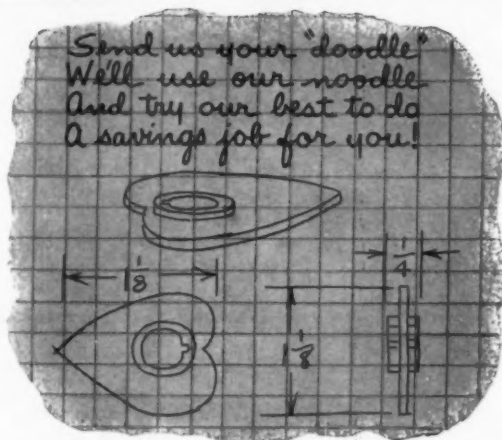 Send us your "doodle"
We'll use our noodle
And try our best to do
A savings job for you!
1 1/8
1/4
1 1/8